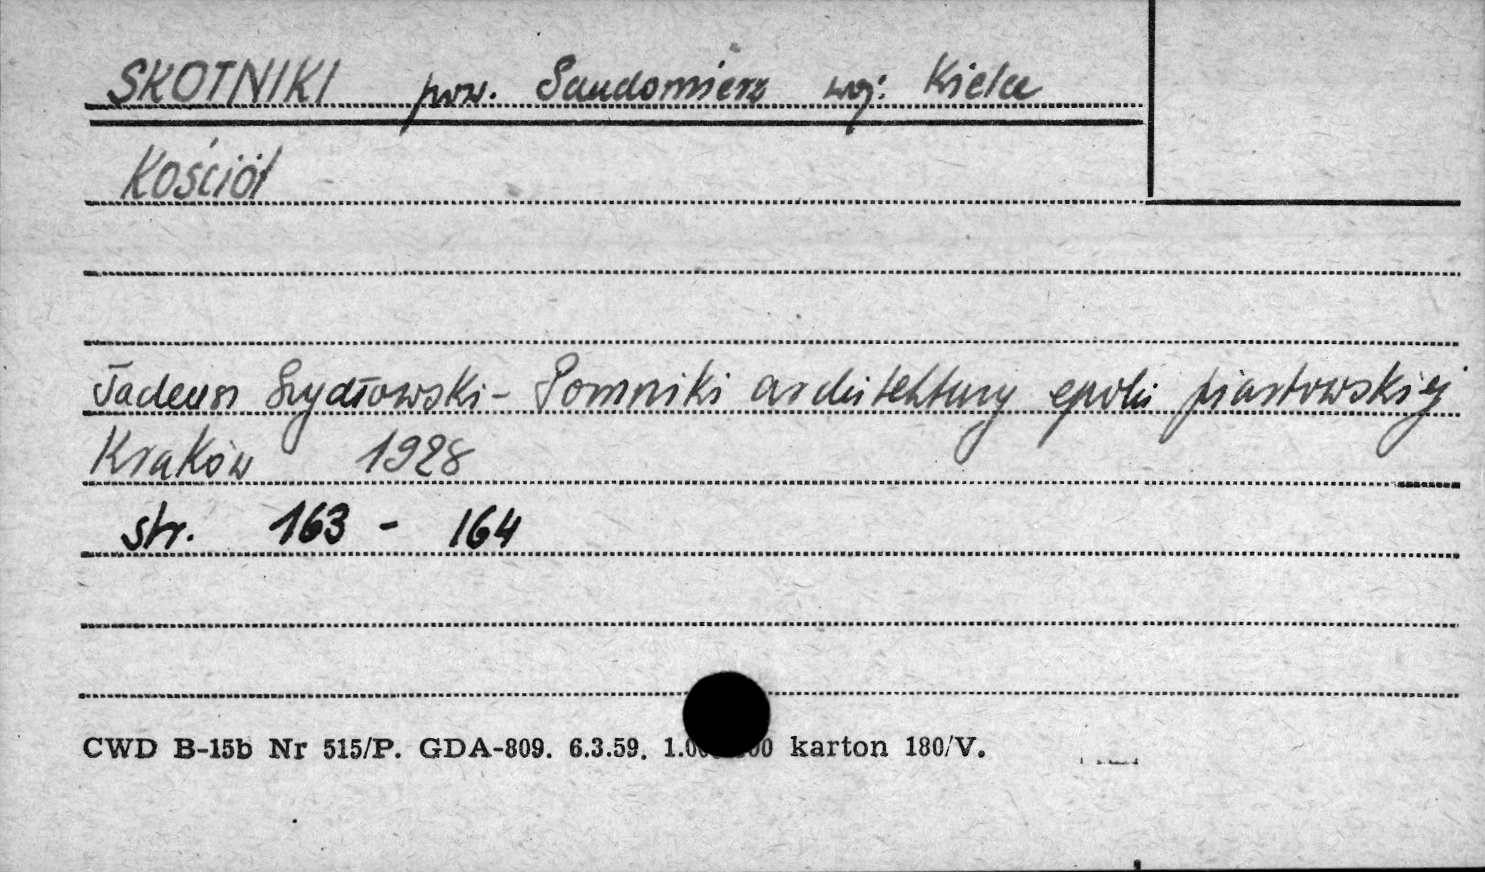 SKOTNIKI pow. Sandomierz woj: Kielce
Kościół
Tadeusz Szydłowski - Pomniki architektury epoki piastowskiej
Kraków 1928
str. 163 - 164
CWD B-15b Nr 515/P. GDA-809. 6.3.59. karton 180/V.